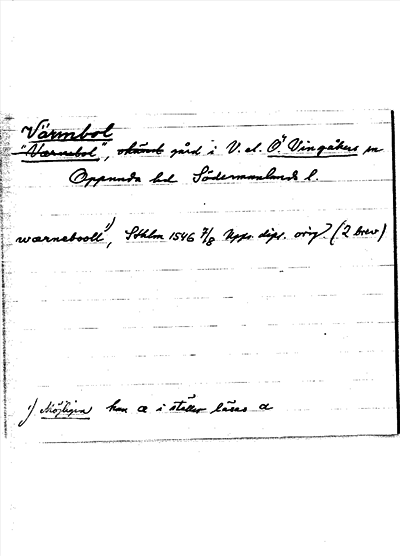 Värmbol
"Værnebol", okänd gård i V. el. Ö. Vingåkers sn
Oppunda hd Södermanlands l.
wærnebooll ¹), Sthlm 1546 7/8 Upps. dipl. orig. (2 brev)
¹) Möjligen kan æ i stället läsas a